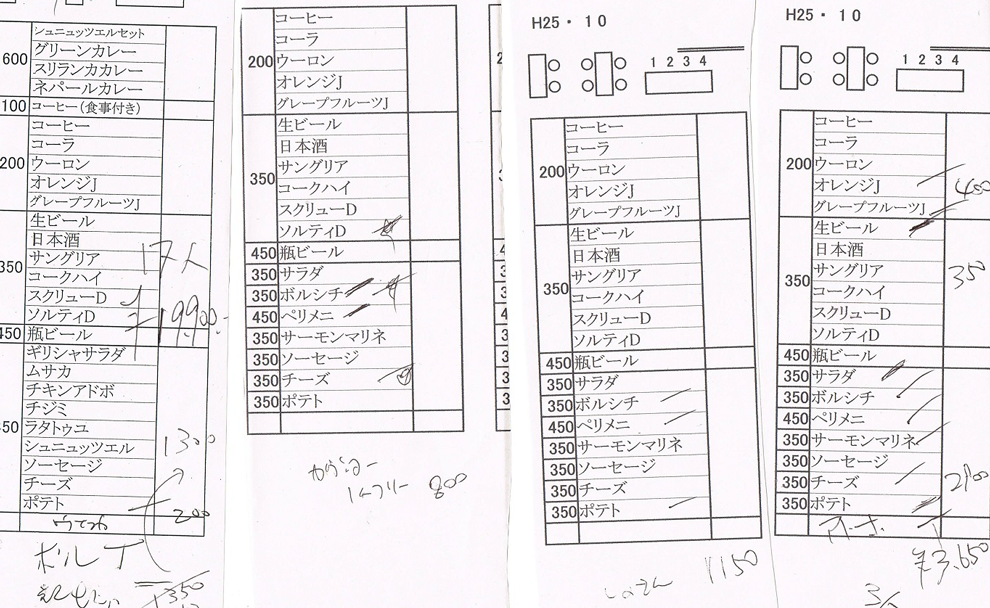 シュニュッツエルセット
600
グリーンカレー
スリランカカレー
ネパールカレー
100 コーヒー(食事付き)
コーヒー
コーラ
200 ウーロン
オレンジJ
グレープフルーツJ
生ビール
日本酒
17人
サングリア
350 コークハイ
スクリューD
19,900.-
ソルティD
450 瓶ビール
ギリシャサラダ
ムサカ
チキンアドボ
チジミ
50 ラタトゥユ
シュニュッツエル
1300
ソーセージ
チーズ
ポテト
200
ボルT
350
コーヒー
コーラ
200 ウーロン
オレンジJ
グレープフルーツJ
生ビール
日本酒
サングリア
350
コークハイ
スクリューD
ソルティD
450 瓶ビール
350 サラダ
350 ボルシチ
450 ペリメニ
350 サーモンマリネ
350 ソーセージ
350 チーズ
350 ポテト
800
H25・10
1 2 3 4
コーヒー
コーラ
200 ウーロン
オレンジJ
グレープフルーツJ
生ビール
日本酒
サングリア
350
コークハイ
スクリューD
ソルティD
450 瓶ビール
350 サラダ
350 ボルシチ
450 ペリメニ
350 サーモンマリネ
350 ソーセージ
350 チーズ
350 ポテト
1150
H25・10
1 2 3 4
コーヒー
コーラ
200 ウーロン
オレンジJ
400
グレープフルーツJ
生ビール
日本酒
サングリア
350
350
コークハイ
スクリューD
ソルティD
450 瓶ビール
350 サラダ
350 ボルシチ
450 ペリメニ
350 サーモンマリネ
350 ソーセージ
350 チーズ
2900
350 ポテト
¥3,650